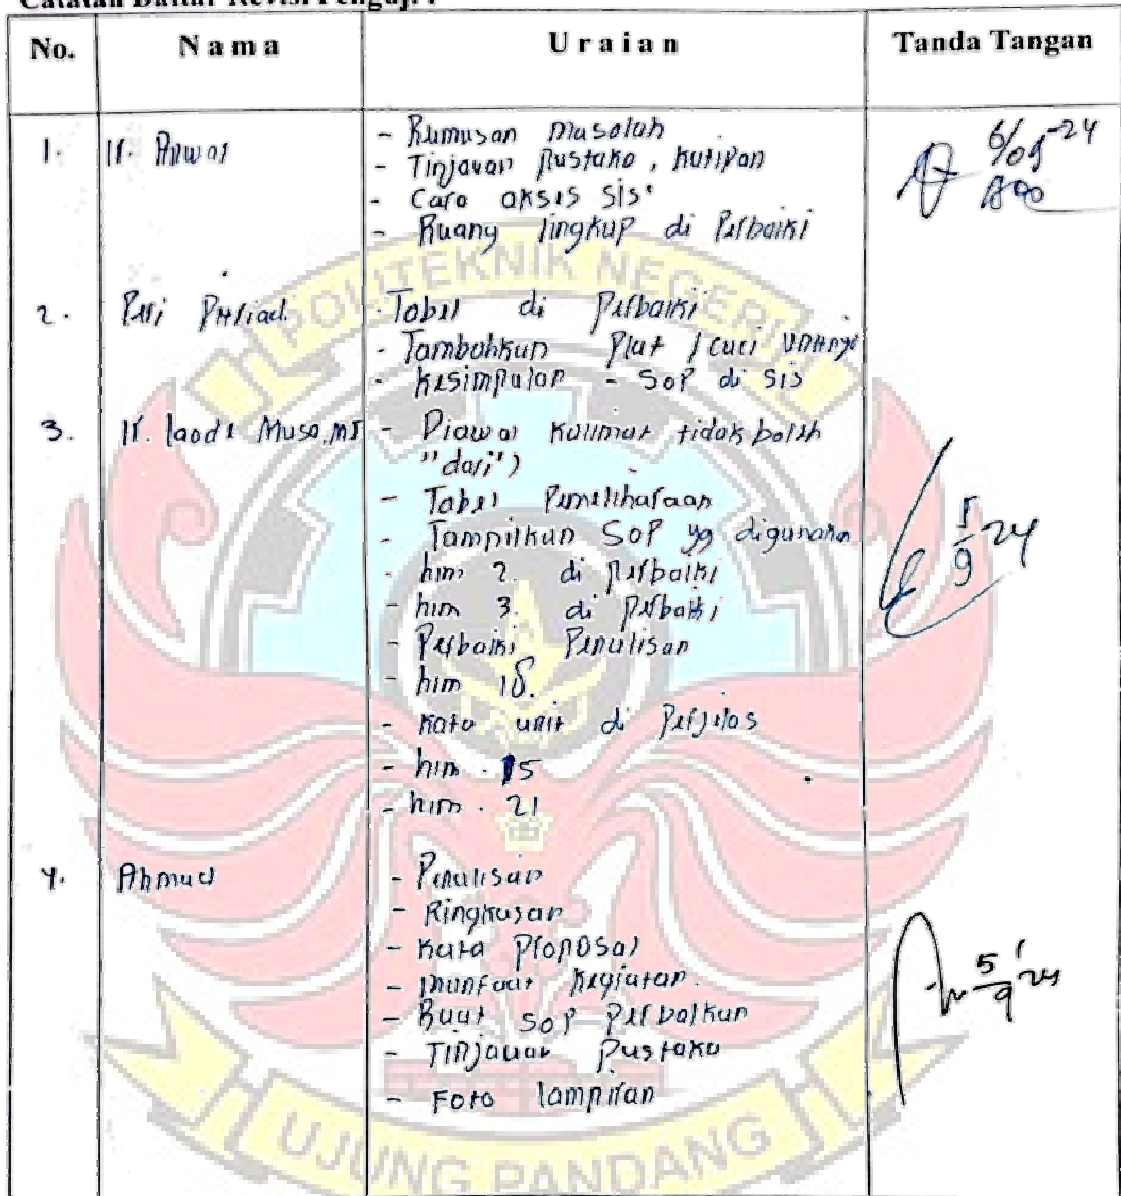 Catatan Daftar Revisi Penguji :
No. Nama Uraian Tanda Tangan
1. Ir. Anwar - Rumusan masalah
- Tinjauan Pustaka, kutipan
- Cara akses SIS
- Ruang lingkup di Perbaiki
2. - Tabel di Perbaiki
- Tambahkan Plat
- kesimpulan - SOP di SIS
3. Ir. laode Musa, MT - Diawal kalimat tidak boleh
"dari")
- Tabel Pemeliharaan
- Tampilkan SOP yg digunakan
- hlm 2. di perbaiki
- hlm 3. di perbaiki
- Perbaiki Penulisan
- hlm 18.
- kata unit di Perjelas
- hlm. 15
- hlm. 21
4. Ahmad - Penulisan
- Ringkasan
- kata Proposal
- manfaat kegiatan.
- Buat SOP perbaikan
- Tinjauan Pustaka
- Foto lampiran
6/09-24
5/9 24
5/9 '24
POLITEKNIK NEGERI
UJUNG PANDANG